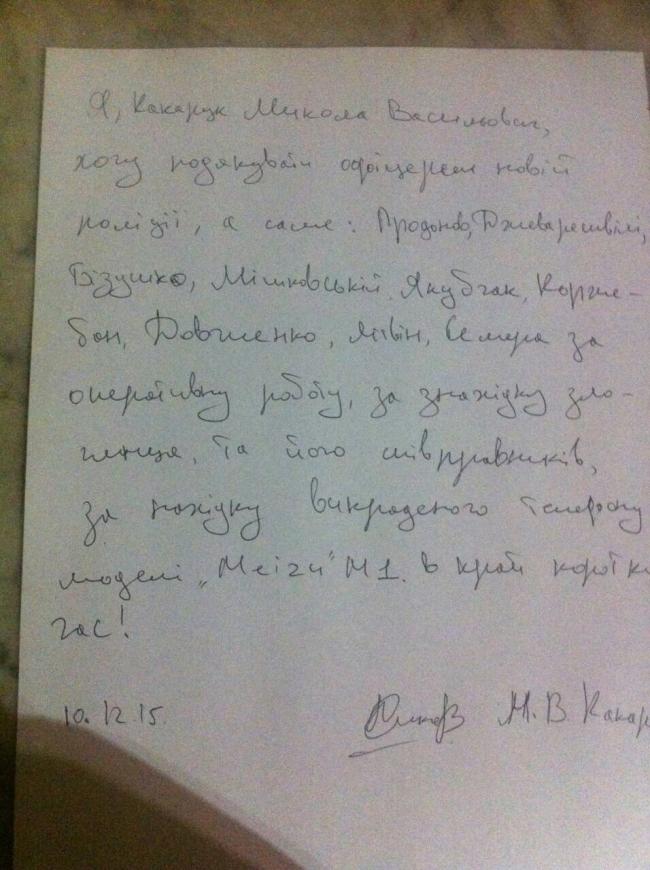 Я, Какарук Микола Васильович,
хочу подякувати офіцерам новій
поліції, а саме: Продонов, Джеварешвілі,
Бізушко, Мішковській, Якубчак, Корже-
бон, Довженко, Мівін, Семера за
оперативну роботу, за знахідку зло-
чинця, та його співправників,
за нахідку викраденого телефону
моделі „Meizu" M1. в край коротк
час!
10. 12. 15. М. В. Какар